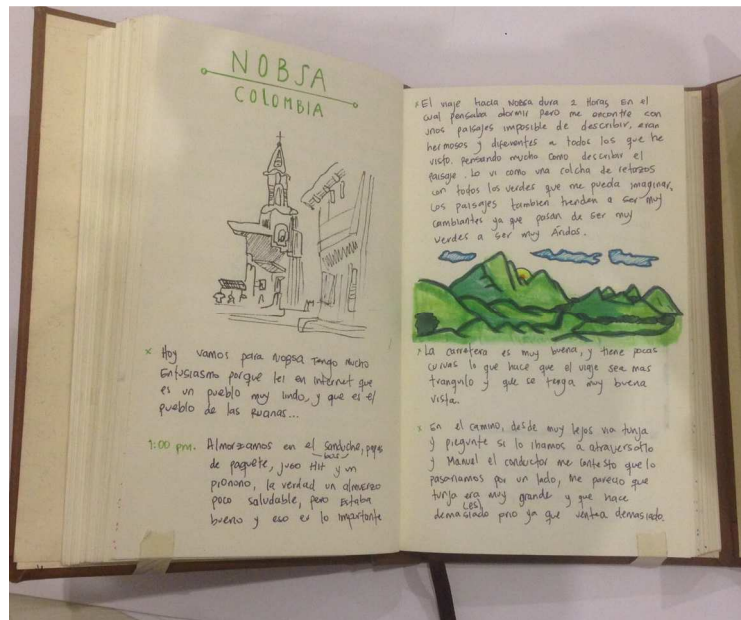 NOBSA
COLOMBIA
x Hoy vamos para Nobsa Tengo Mucho
Entusiasmo porque lei en internet que
es un pueblo muy lindo, y que es el
pueblo de las Ruanas...
1:00 pm. Almorzamos en el sanduche, papas
bus
de paquete, jugo Hit y un
pionono, la verdad un almuerzo
poco saludable, pero Estaba
bueno y eso es lo importante
x El viaje hacia Nobsa dura 2 Horas En el
cual pensaba dormir pero me encontre con
unos paisajes imposible de describir, eran
hermosos y diferentes a todos los que he
visto. pensando mucho como describir el
paisaje. Lo vi como una colcha de retazos
con todos los verdes que me pueda imaginar.
Los paisajes tambien tienden a ser muy
cambiantes ya que pasan de ser muy
verdes a ser muy Áridos.
x La carretera es muy buena, y tiene pocas
curvas lo que hace que el viaje sea mas
tranquilo y que se tenga muy buena
vista.
x En el camino, desde muy lejos via tunja
y pregunte si lo ibamos a atravesarlo
y Manuel el conductor me contesto que lo
pasariamos por un lado, me parecio que
tunja era muy grande y que hace
demasiado frio ya que ventea demasiado.